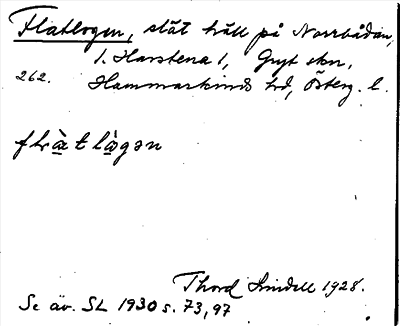 Flatlogen, slät häll på Norrbådan,
1. Harstena 1, Gryt skn,
262. Hammarkinds hd, Österg. l.
flàt lògən
Thord Lindell 1928.
Se äv. SL 1930 s. 73, 97